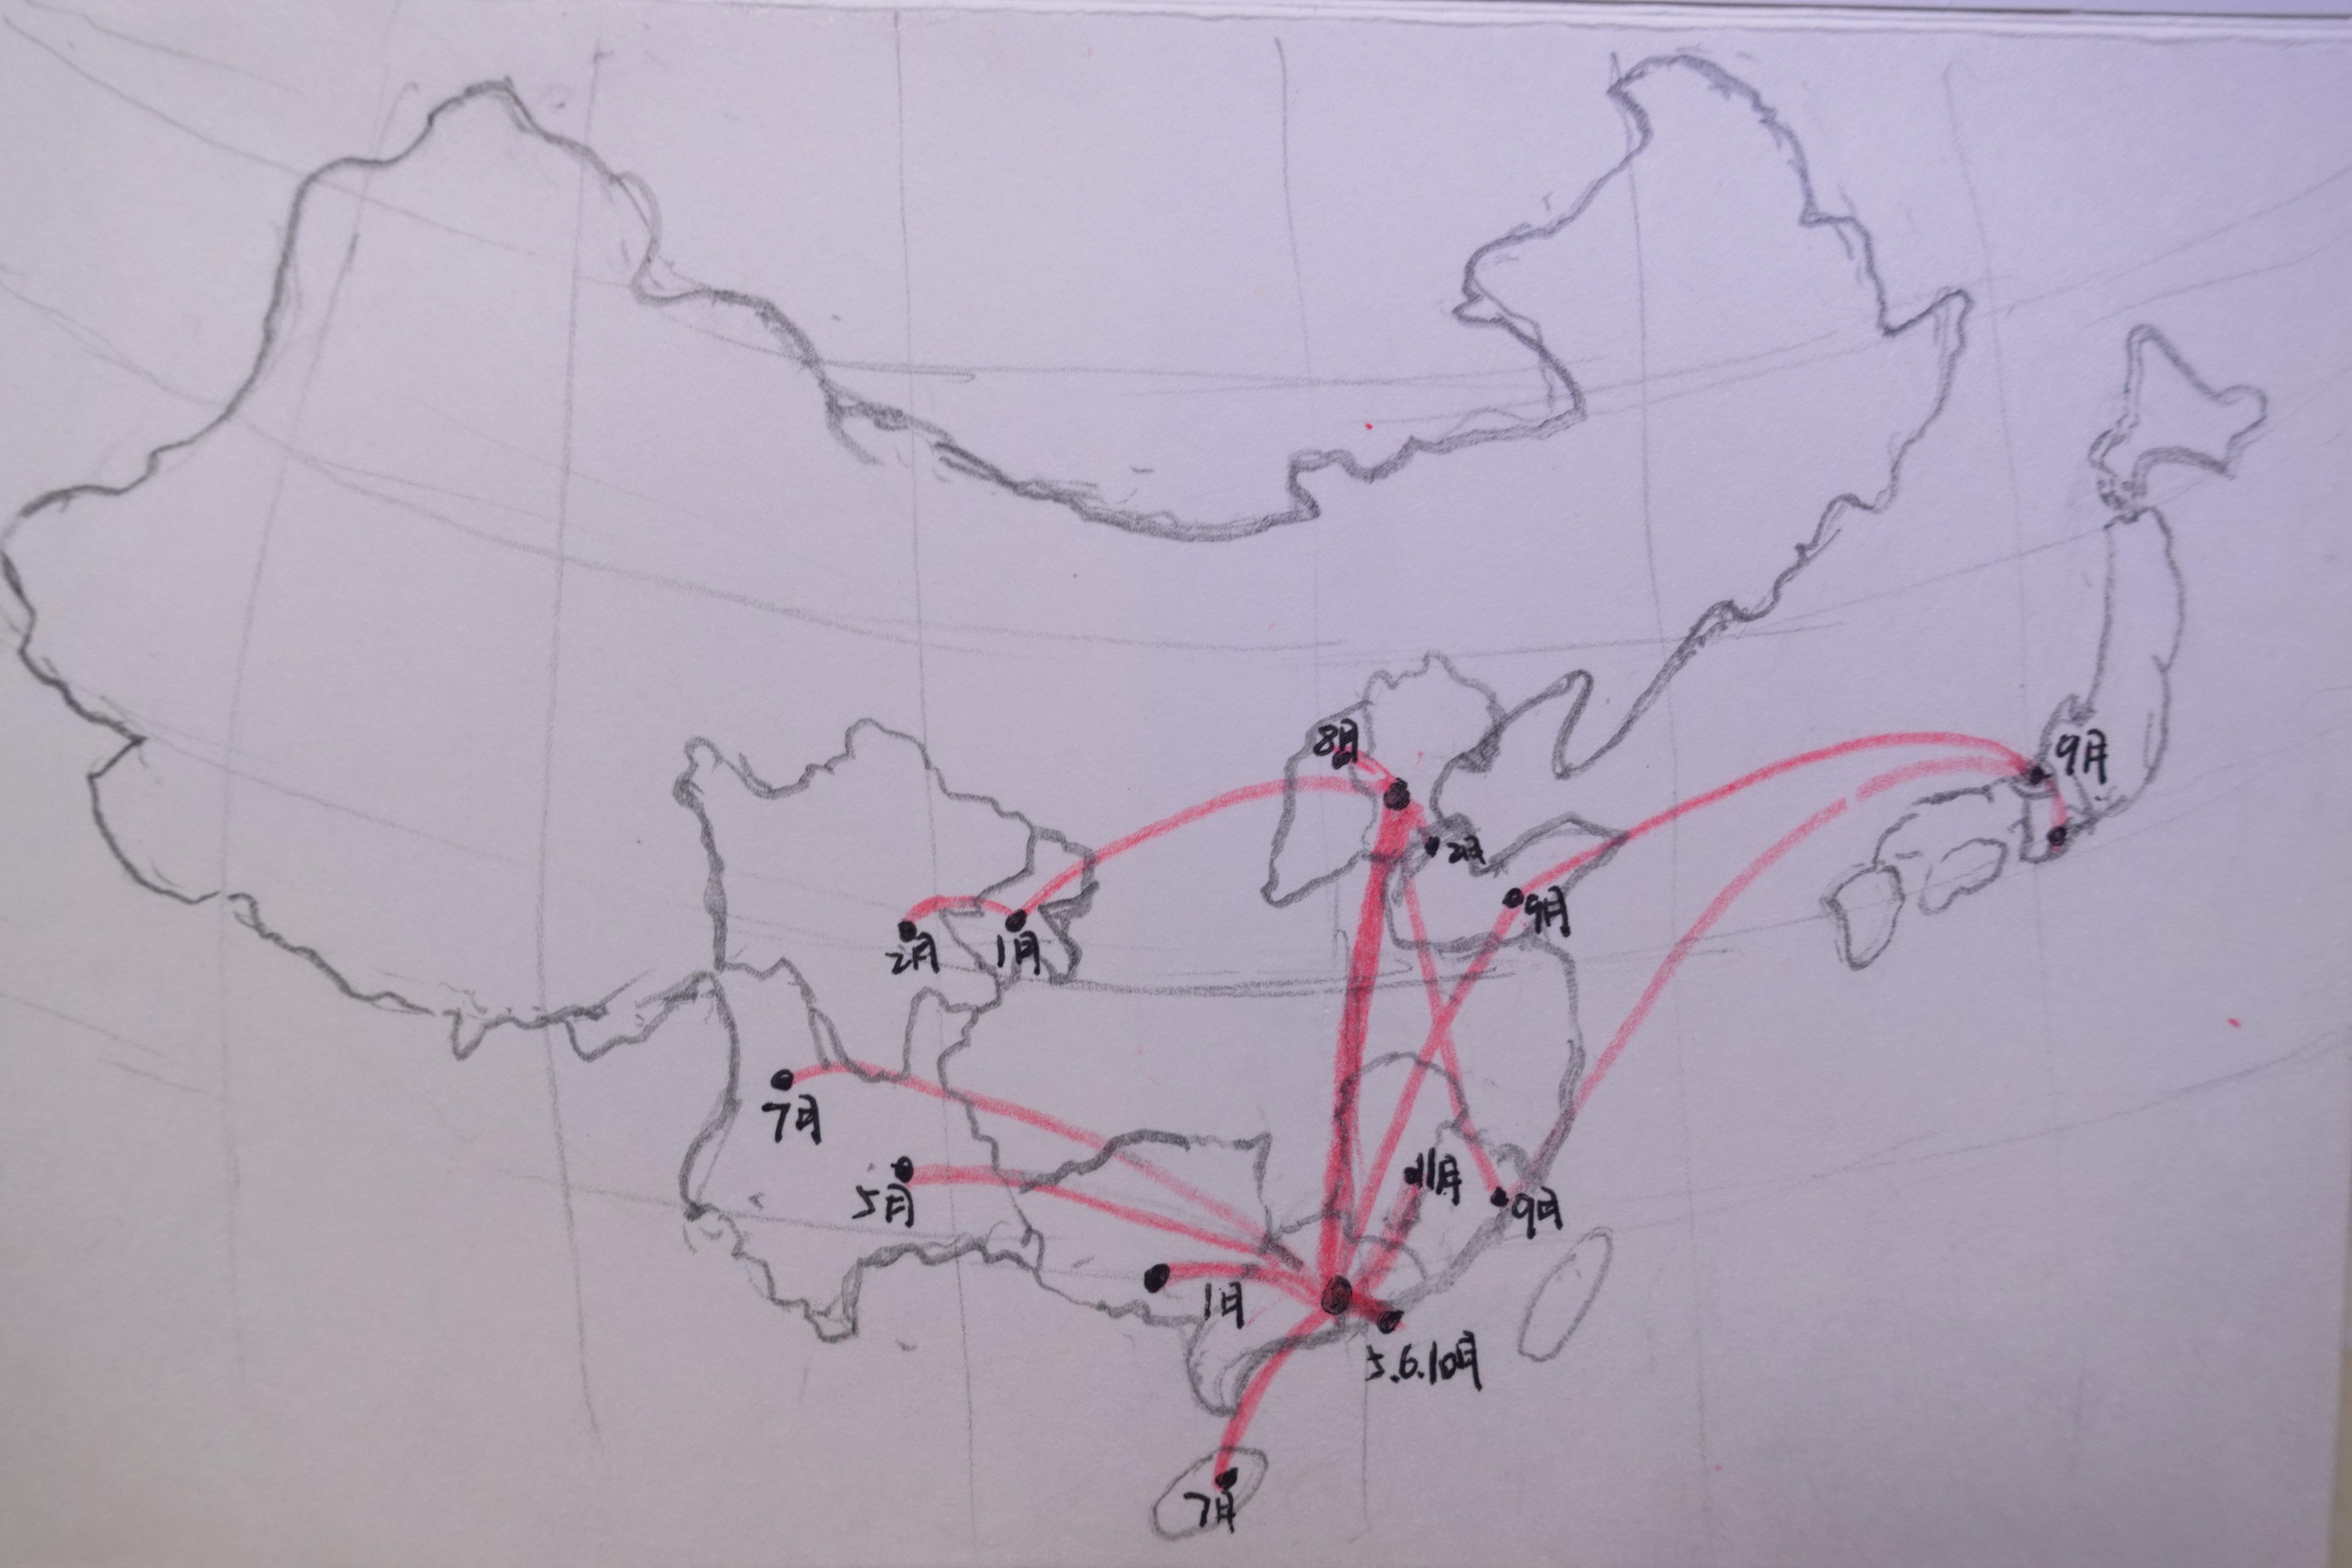 8月
9月
2月
9月
2月
1月
7月
5月
11月
9月
1月
5.6.10月
7月